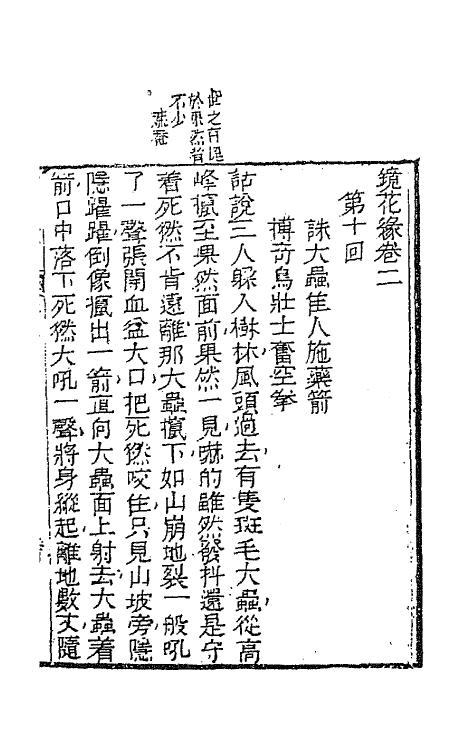 鏡花緣卷二
第十回
誅大蟲佳人施藥箭
搏奇鳥壯士奮空拳
話說三人躱入樹林風頭過去有隻斑毛大蟲從高
峰攛至果然面前果然一見嚇的雖然發抖還是守
着死猴不肯遠離那大蟲攛下如山崩地裂一般吼
了一聲張開血盆大口把死猴咬住只見山坡旁隱
隱躍躍倒像攛出一箭直向大蟲面上射去大蟲着
箭口中落下死猴大吼一聲將身縱起離地數丈隨
世之有愧
於果然者
不少